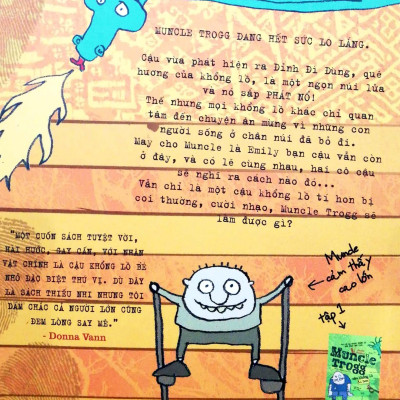 MUNCLE TROGG ĐANG HẾT SỨC LO LẮNG.
Cậu vừa phát hiện ra Đỉnh Đì Dùng, quê
hương của khổng lồ, là một ngọn núi lửa
và nó sắp PHÁT NỔ!
Thế nhưng mọi khổng lồ khác chỉ quan
tâm đến chuyện ăn mừng vì những con
người sống ở chân núi đã bỏ đi.
May cho Muncle là Emily bạn cậu vẫn còn
ở đây, và có lẽ cùng nhau, hai cô cậu
sẽ nghĩ ra cách nào đó...
Vẫn chỉ là một cậu khổng lồ tí hon bị
coi thường, cười nhạo, Muncle Trogg sẽ
làm được gì?
"MỘT CUỐN SÁCH TUYỆT VỜI,
HÀI HƯỚC, GAY CẤN, VỚI NHÂN
VẬT CHÍNH LÀ CẬU KHỔNG LỒ BÉ
NHỎ ĐẶC BIỆT THÚ VỊ. DÙ ĐÂY
LÀ SÁCH THIẾU NHI NHƯNG TÔI
DÁM CHẮC CẢ NGƯỜI LỚN CŨNG
ĐEM LÒNG SAY MÊ."
- Donna Vann
Muncle
cảm thấy
cao lớn
tập 1
Muncle
Trogg